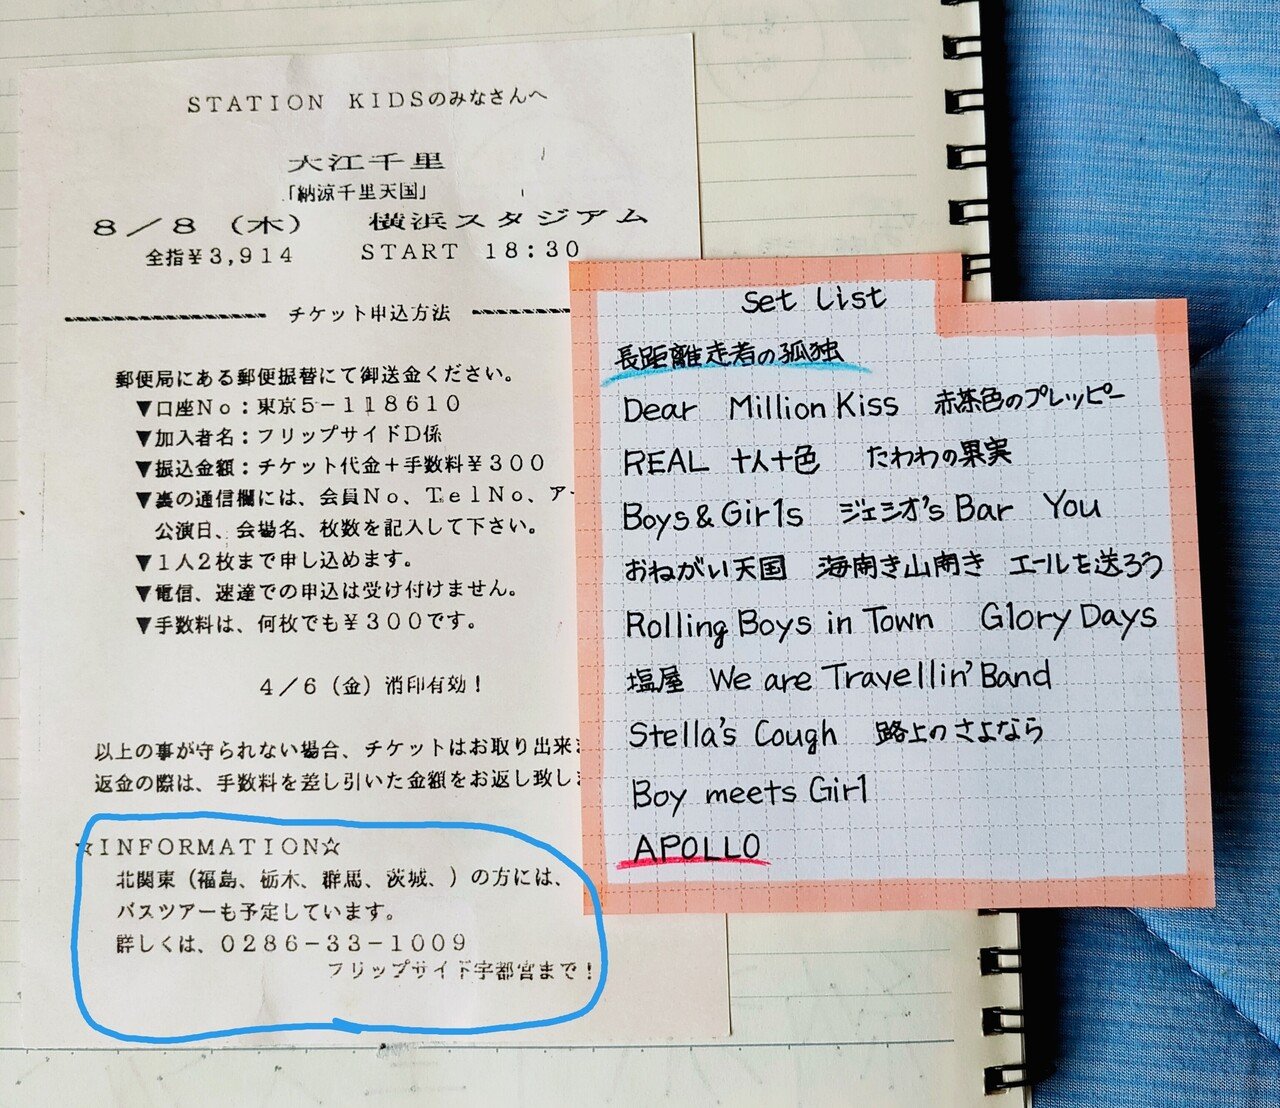 STATION KIDSのみなさんへ
大江千里
「納涼千里天国」
8/8(木) 横浜スタジアム
全指¥3,914 START 18:30
チケット申込方法
郵便局にある郵便振替にて御送金ください。
▼口座No:東京5-118610
▼加入者名:フリップサイドD係
▼振込金額:チケット代金+手数料¥300
▼裏の通信欄には、会員No、TelNo、ア
公演日、会場名、枚数を記入して下さい。
▼1人2枚まで申し込めます。
▼電信、速達での申込は受け付けません。
▼手数料は、何枚でも¥300です。
4/6(金)消印有効!
以上の事が守られない場合、チケットはお取り出来ま
返金の際は、手数料を差し引いた金額をお返し致しま
☆INFORMATION☆
北関東(福島、栃木、群馬、茨城、)の方には、
バスツアーも予定しています。
詳しくは、0286-33-1009
フリップサイド宇都宮まで!
Set List
長距離走者の孤独
Dear Million Kiss 赤茶色のプレッピー
REAL 十人十色 たわわの果実
Boys & Girls ジェシオ's Bar You
おねがい天国 海開き山開き エールを送ろう
Rolling Boys in Town Glory Days
塩屋 We are Travellin' Band
Stella's Cough 路上のさよなら
Boy meets Girl
APOLLO